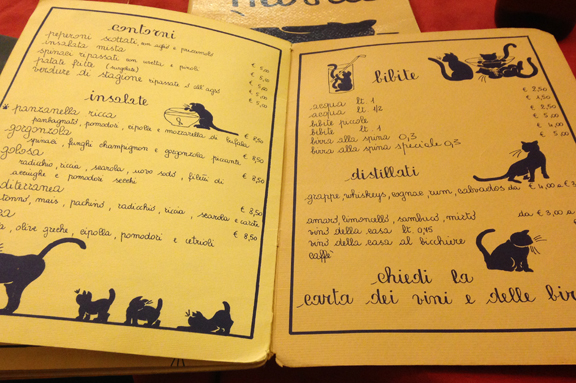 contorni
peperoni scottati con aglio e prezzemolo
insalata mista
spinaci ripassati con uvetta e pinoli
patate fritte (surgelate)
verdure di stagione ripassate o all'agro
€ 5,00
€ 5,00
€ 5,00
insalate
panzanella ricca
panbagnato, pomodori, cipolla e mozzarella di bufala € 8,50
gorgonzola
spinaci, funghi champignon e gorgonzola piccante € 8,50
golosa
radicchio, ricca, scarola, uovo sodo, filetti di
acciughe e pomodori secchi € 8,50
diterranea
tonno, mais, pachino, radicchio, ricca, scarola e carote € 8,50
olive greche, cipolla, pomodori e cetrioli € 8,50
bibite
acqua lt. 1 € 2,50
acqua lt. 1/2 € 1,50
bibite piccole € 2,50
bibite lt. 1 € 5,00
birra alla spina 0,3 € 4,00
birra alla spina speciale 0,3 € 5,00
distillati
grappe, whiskeys, cognac, rum, calvados da € 4,00 a €
amari, limoncello, sambuca, mirto da € 3,00 a
vino della casa lt. 0,45
vino della casa al bicchiere
caffè
chiedi la
carta dei vini e delle bir